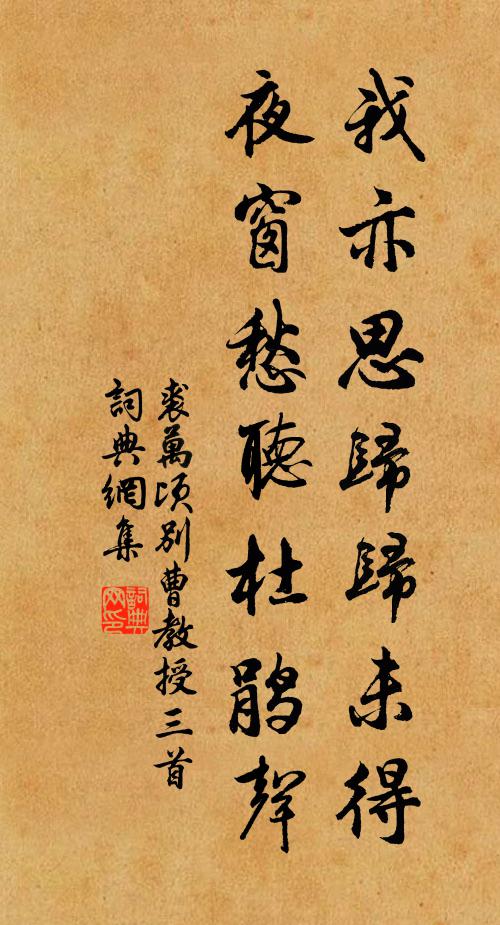 我亦思歸歸未得
夜窗愁聽杜鵑聲
裘萬頃別曹教授三首
詞典網集
詞典网印